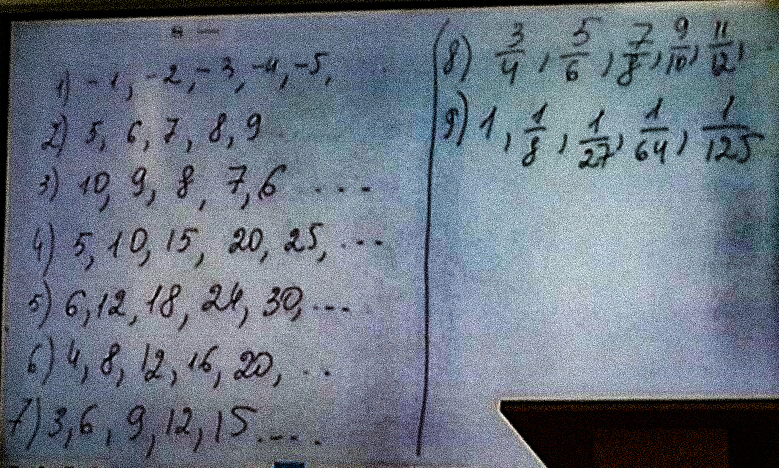 1) -1, -2, -3, -4, -5,
2) 5, 6, 7, 8, 9
3) 10, 9, 8, 7, 6 ....
4) 5, 10, 15, 20, 25, ...
5) 6, 12, 18, 24, 30, ...
6) 4, 8, 12, 16, 20, ..
7) 3, 6, 9, 12, 15 ....
8) 3/4, 5/6, 7/8, 9/10, 11/12,
9) 1, 1/8, 1/27, 1/64, 1/125